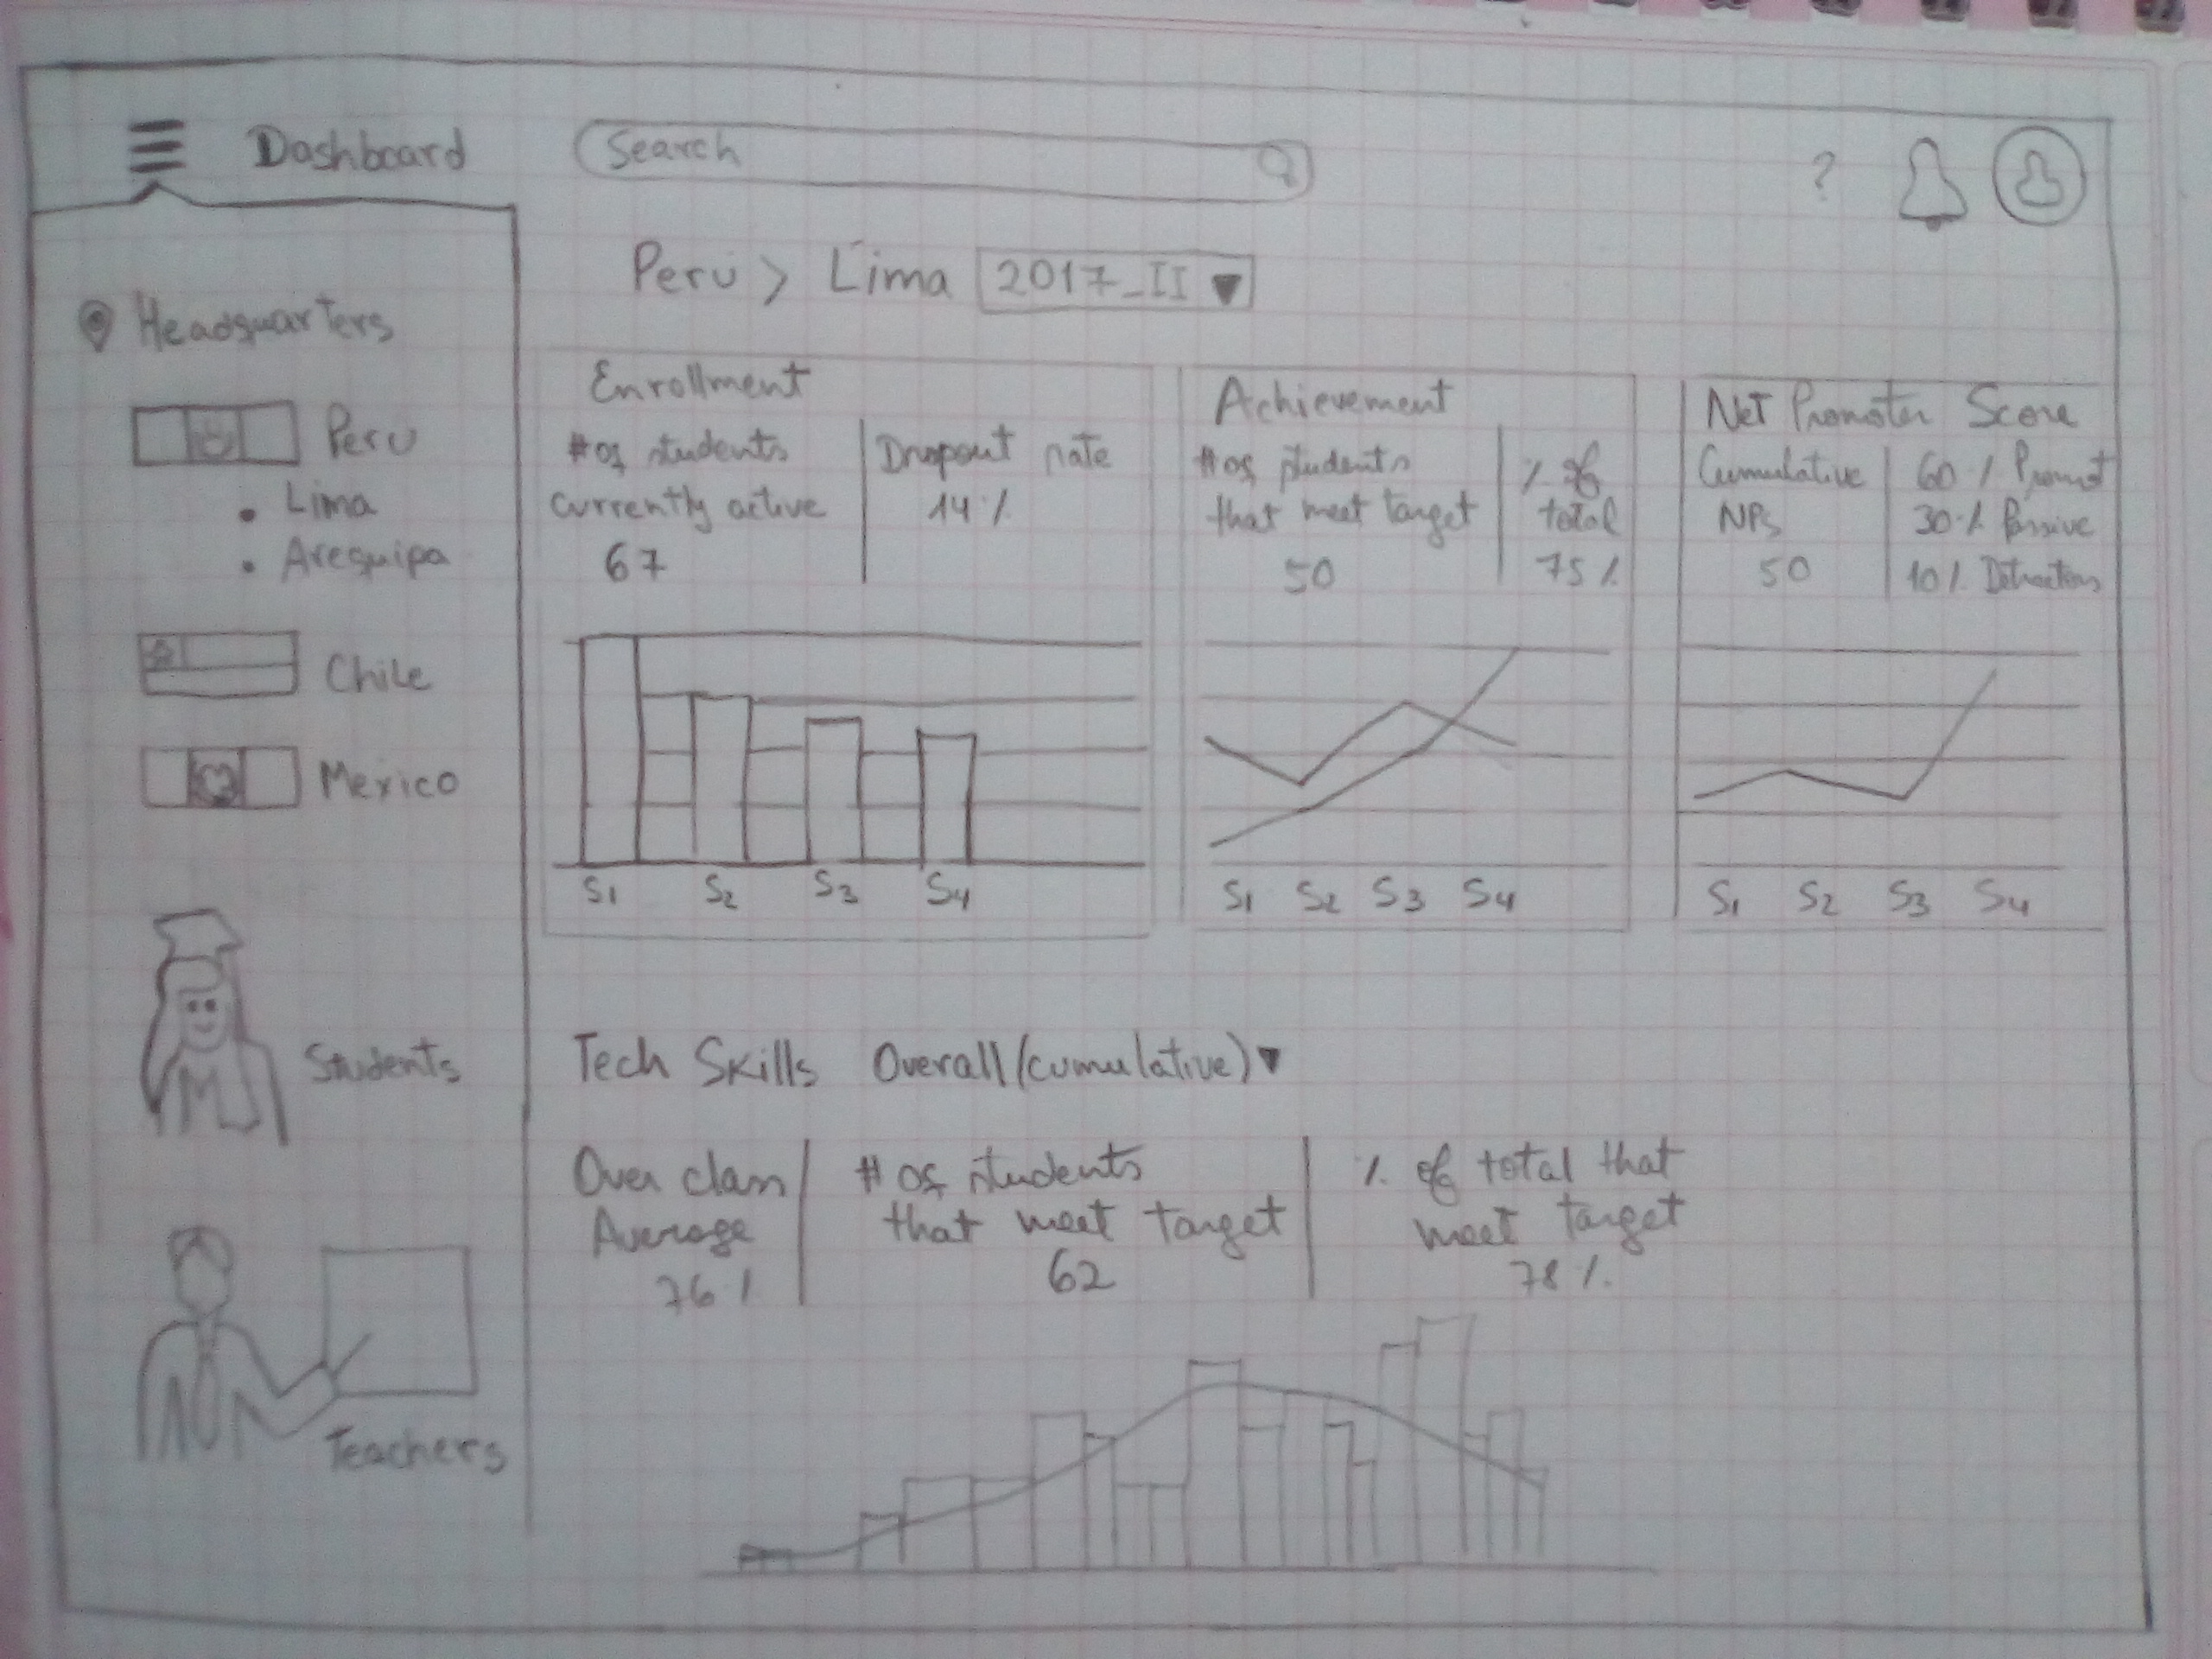 Dashboard
Search
?
Perú > Lima 2017_II
Headquarters
Perú
• Lima
• Arequipa
Chile
Mexico
Students
Teachers
Enrollment
# of students
currently active
67
Dropout rate
14%
Achievement
# of students
that meet target
50
% of
total
75%
Net Promoter Score
Cumulative
NPS
50
60% Promot
30% Passive
10%
S1 S2 S3 S4
S1 S2 S3 S4
S1 S2 S3 S4
Tech Skills Overall (cumulative)
Over class
Average
76%
# of students
that meet target
62
% of total that
meet target
78%